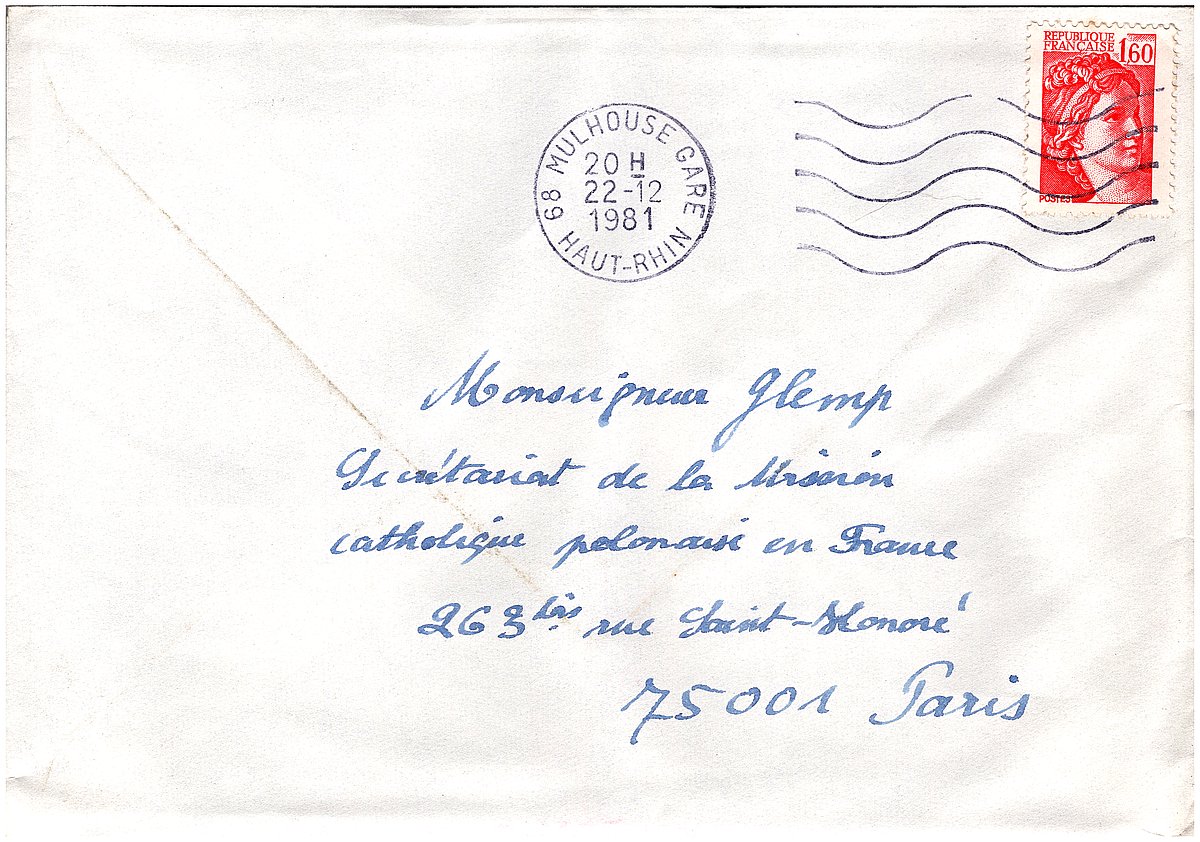 REPUBLIQUE
FRANÇAISE 1,60
POSTES
68 MULHOUSE GARE
20 H
22-12
1981
HAUT-RHIN
Monseigneur Glemp
Secrétariat de la Mission
catholique polonaise en France
263 bis rue Saint-Honoré
75001 Paris